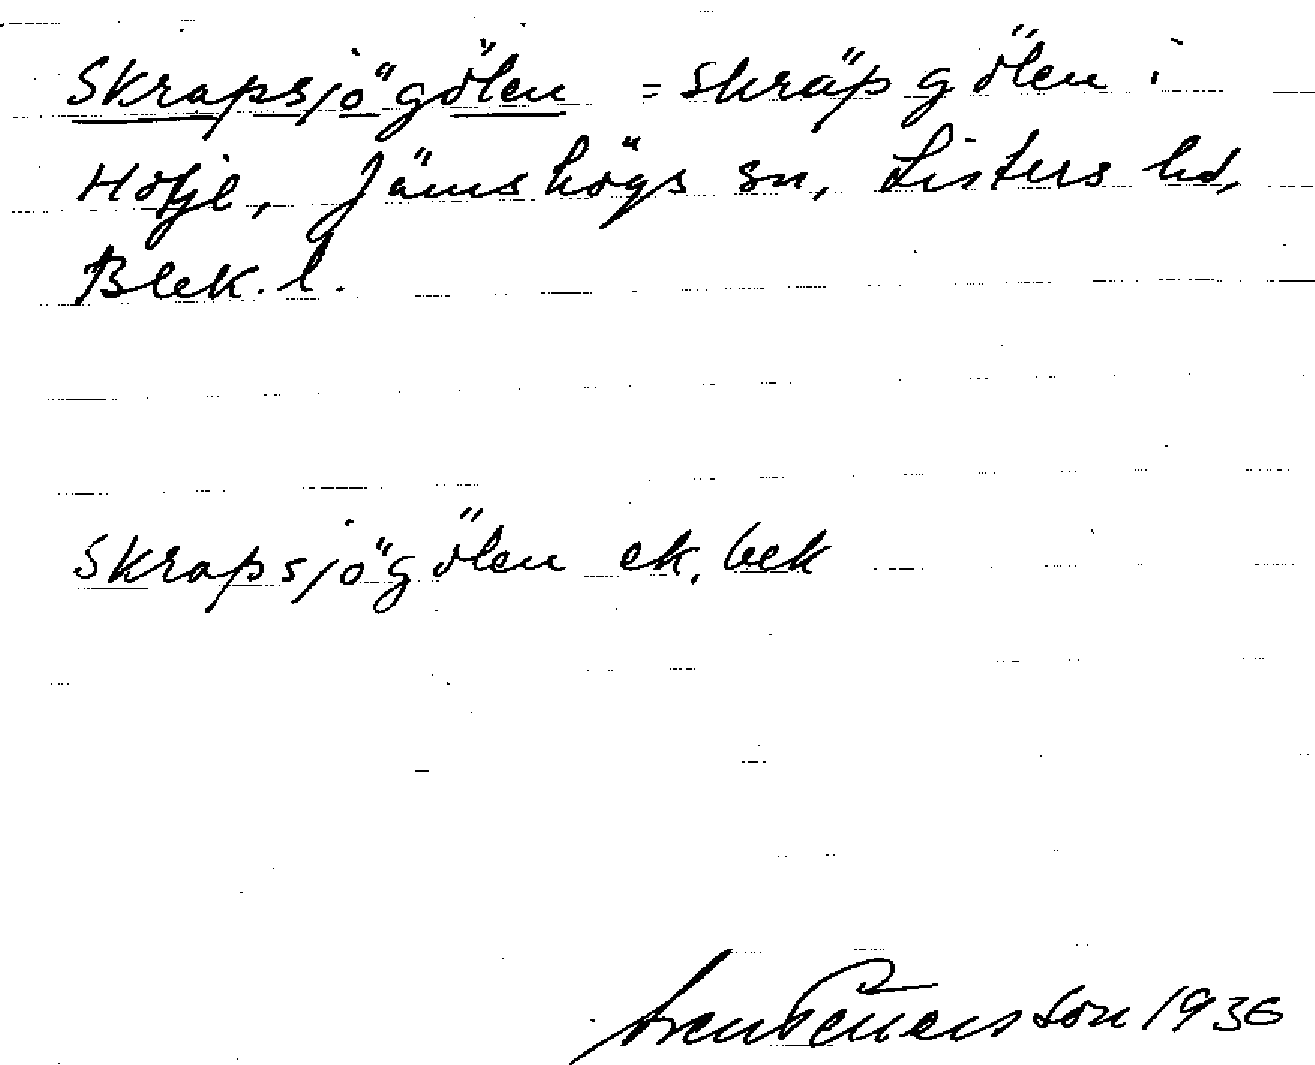 Skrapsjögölen = Skräpgölen i
Holje, Jämshögs sn, Listers hd,
Blek. l.
Skrapsjögölen ek. bek
Sven Petersson 1936